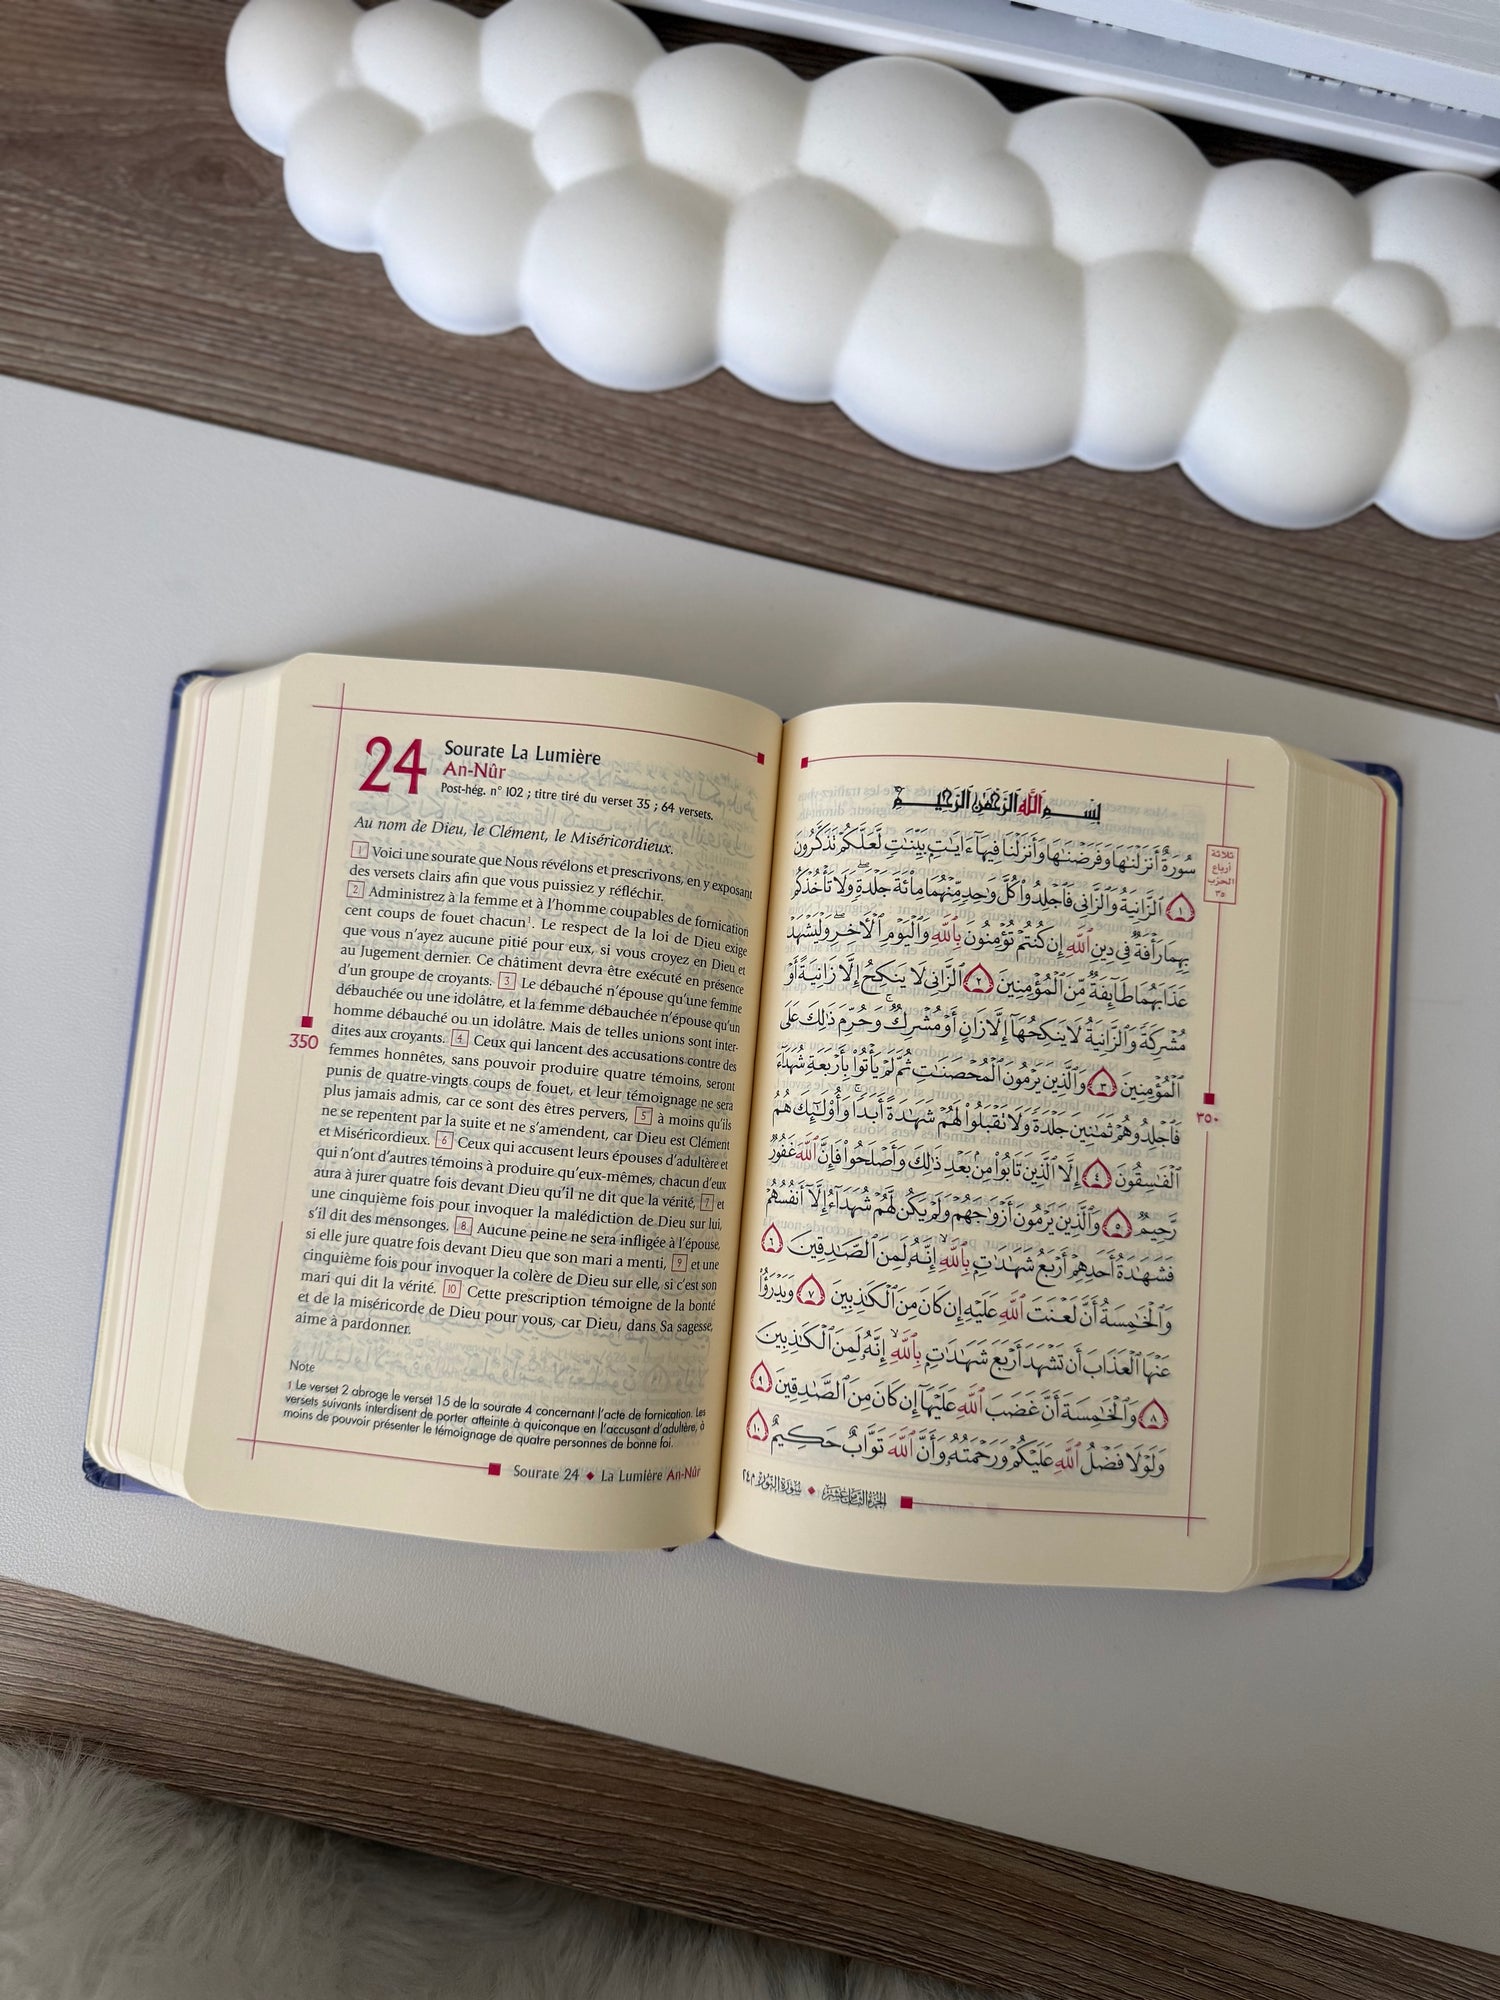 24
Sourate La Lumière
An-Nûr
Post-hég. n° 102 ; titre tiré du verset 35 ; 64 versets.
Au nom de Dieu, le Clément, le Miséricordieux.
1 Voici une sourate que Nous révélons et prescrivons, en y exposant
des versets clairs afin que vous puissiez y réfléchir.
2 Administrez à la femme et à l'homme coupables de fornication
cent coups de fouet chacun¹. Le respect de la loi de Dieu exige
que vous n'ayez aucune pitié pour eux, si vous croyez en Dieu et
au Jugement dernier. Ce châtiment devra être exécuté en présence
d'un groupe de croyants. 3 Le débauché n'épouse qu'une femme
débauchée ou une idolâtre, et la femme débauchée n'épouse qu'un
homme débauché ou un idolâtre. Mais de telles unions sont inter-
dites aux croyants. 4 Ceux qui lancent des accusations contre des
femmes honnêtes, sans pouvoir produire quatre témoins, seront
punis de quatre-vingts coups de fouet, et leur témoignage ne sera
plus jamais admis, car ce sont des êtres pervers, 5 à moins qu'ils
ne se repentent par la suite et ne s'amendent, car Dieu est Clément
et Miséricordieux. 6 Ceux qui accusent leurs épouses d'adultère et
qui n'ont d'autres témoins à produire qu'eux-mêmes, chacun d'eux
aura à jurer quatre fois devant Dieu qu'il ne dit que la vérité, 7 et
une cinquième fois pour invoquer la malédiction de Dieu sur lui,
s'il dit des mensonges. 8 Aucune peine ne sera infligée à l'épouse,
si elle jure quatre fois devant Dieu que son mari a menti, 9 et une
cinquième fois pour invoquer la colère de Dieu sur elle, si c'est son
mari qui dit la vérité. 10 Cette prescription témoigne de la bonté
et de la miséricorde de Dieu pour vous, car Dieu, dans Sa sagesse,
aime à pardonner.
350
Note
1 Le verset 2 abroge le verset 15 de la sourate 4 concernant l'acte de fornication. Les
versets suivants interdisent de porter atteinte à quiconque en l'accusant d'adultère, à
moins de pouvoir présenter le témoignage de quatre personnes de bonne foi.
Sourate 24 ◆ La Lumière An-Nûr
بِسْمِ ٱللَّهِ ٱلرَّحْمَٰنِ ٱلرَّحِيمِ
سُورَةٌ أَنزَلْنَٰهَا وَفَرَضْنَٰهَا وَأَنزَلْنَا فِيهَآ ءَايَٰتٍۭ بَيِّنَٰتٍ لَّعَلَّكُمْ تَذَكَّرُونَ
١ ٱلزَّانِيَةُ وَٱلزَّانِى فَٱجْلِدُوا۟ كُلَّ وَٰحِدٍ مِّنْهُمَا مِا۟ئَةَ جَلْدَةٍ ۖ وَلَا تَأْخُذْكُم
بِهِمَا رَأْفَةٌ فِى دِينِ ٱللَّهِ إِن كُنتُمْ تُؤْمِنُونَ بِٱللَّهِ وَٱلْيَوْمِ ٱلْءَاخِرِ ۖ وَلْيَشْهَدْ
عَذَابَهُمَا طَآئِفَةٌ مِّنَ ٱلْمُؤْمِنِينَ ٢ ٱلزَّانِى لَا يَنكِحُ إِلَّا زَانِيَةً أَوْ
مُشْرِكَةً وَٱلزَّانِيَةُ لَا يَنكِحُهَآ إِلَّا زَانٍ أَوْ مُشْرِكٌ ۚ وَحُرِّمَ ذَٰلِكَ عَلَى
ٱلْمُؤْمِنِينَ ٣ وَٱلَّذِينَ يَرْمُونَ ٱلْمُحْصَنَٰتِ ثُمَّ لَمْ يَأْتُوا۟ بِأَرْبَعَةِ شُهَدَآءَ
فَٱجْلِدُوهُمْ ثَمَٰنِينَ جَلْدَةً وَلَا تَقْبَلُوا۟ لَهُمْ شَهَٰدَةً أَبَدًا ۚ وَأُو۟لَٰٓئِكَ هُمُ
ٱلْفَٰسِقُونَ ٤ إِلَّا ٱلَّذِينَ تَابُوا۟ مِنۢ بَعْدِ ذَٰلِكَ وَأَصْلَحُوا۟ فَإِنَّ ٱللَّهَ غَفُورٌ
رَّحِيمٌ ٥ وَٱلَّذِينَ يَرْمُونَ أَزْوَٰجَهُمْ وَلَمْ يَكُن لَّهُمْ شُهَدَآءُ إِلَّآ أَنفُسُهُمْ
فَشَهَٰدَةُ أَحَدِهِمْ أَرْبَعُ شَهَٰدَٰتٍۭ بِٱللَّهِ ۙ إِنَّهُۥ لَمِنَ ٱلصَّٰدِقِينَ ٦
وَٱلْخَٰمِسَةُ أَنَّ لَعْنَتَ ٱللَّهِ عَلَيْهِ إِن كَانَ مِنَ ٱلْكَٰذِبِينَ ٧ وَيَدْرَؤُا۟
عَنْهَا ٱلْعَذَابَ أَن تَشْهَدَ أَرْبَعَ شَهَٰدَٰتٍۭ بِٱللَّهِ ۙ إِنَّهُۥ لَمِنَ ٱلْكَٰذِبِينَ
٨ وَٱلْخَٰمِسَةَ أَنَّ غَضَبَ ٱللَّهِ عَلَيْهَآ إِن كَانَ مِنَ ٱلصَّٰدِقِينَ ٩
وَلَوْلَا فَضْلُ ٱللَّهِ عَلَيْكُمْ وَرَحْمَتُهُۥ وَأَنَّ ٱللَّهَ تَوَّابٌ حَكِيمٌ ١٠
ثلاثة
أرباع
الحزب
٣٥
٣٥٠
الجزء الثامن عشر ◆ سورة النور ٢٤